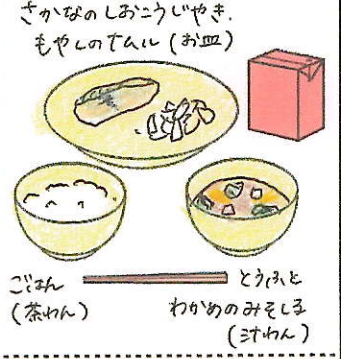 さかなのしおこうじやき.
もやしのナムル (お皿)
ごはん
(茶わん)
とうふと
わかめのみそしる
(汁わん)